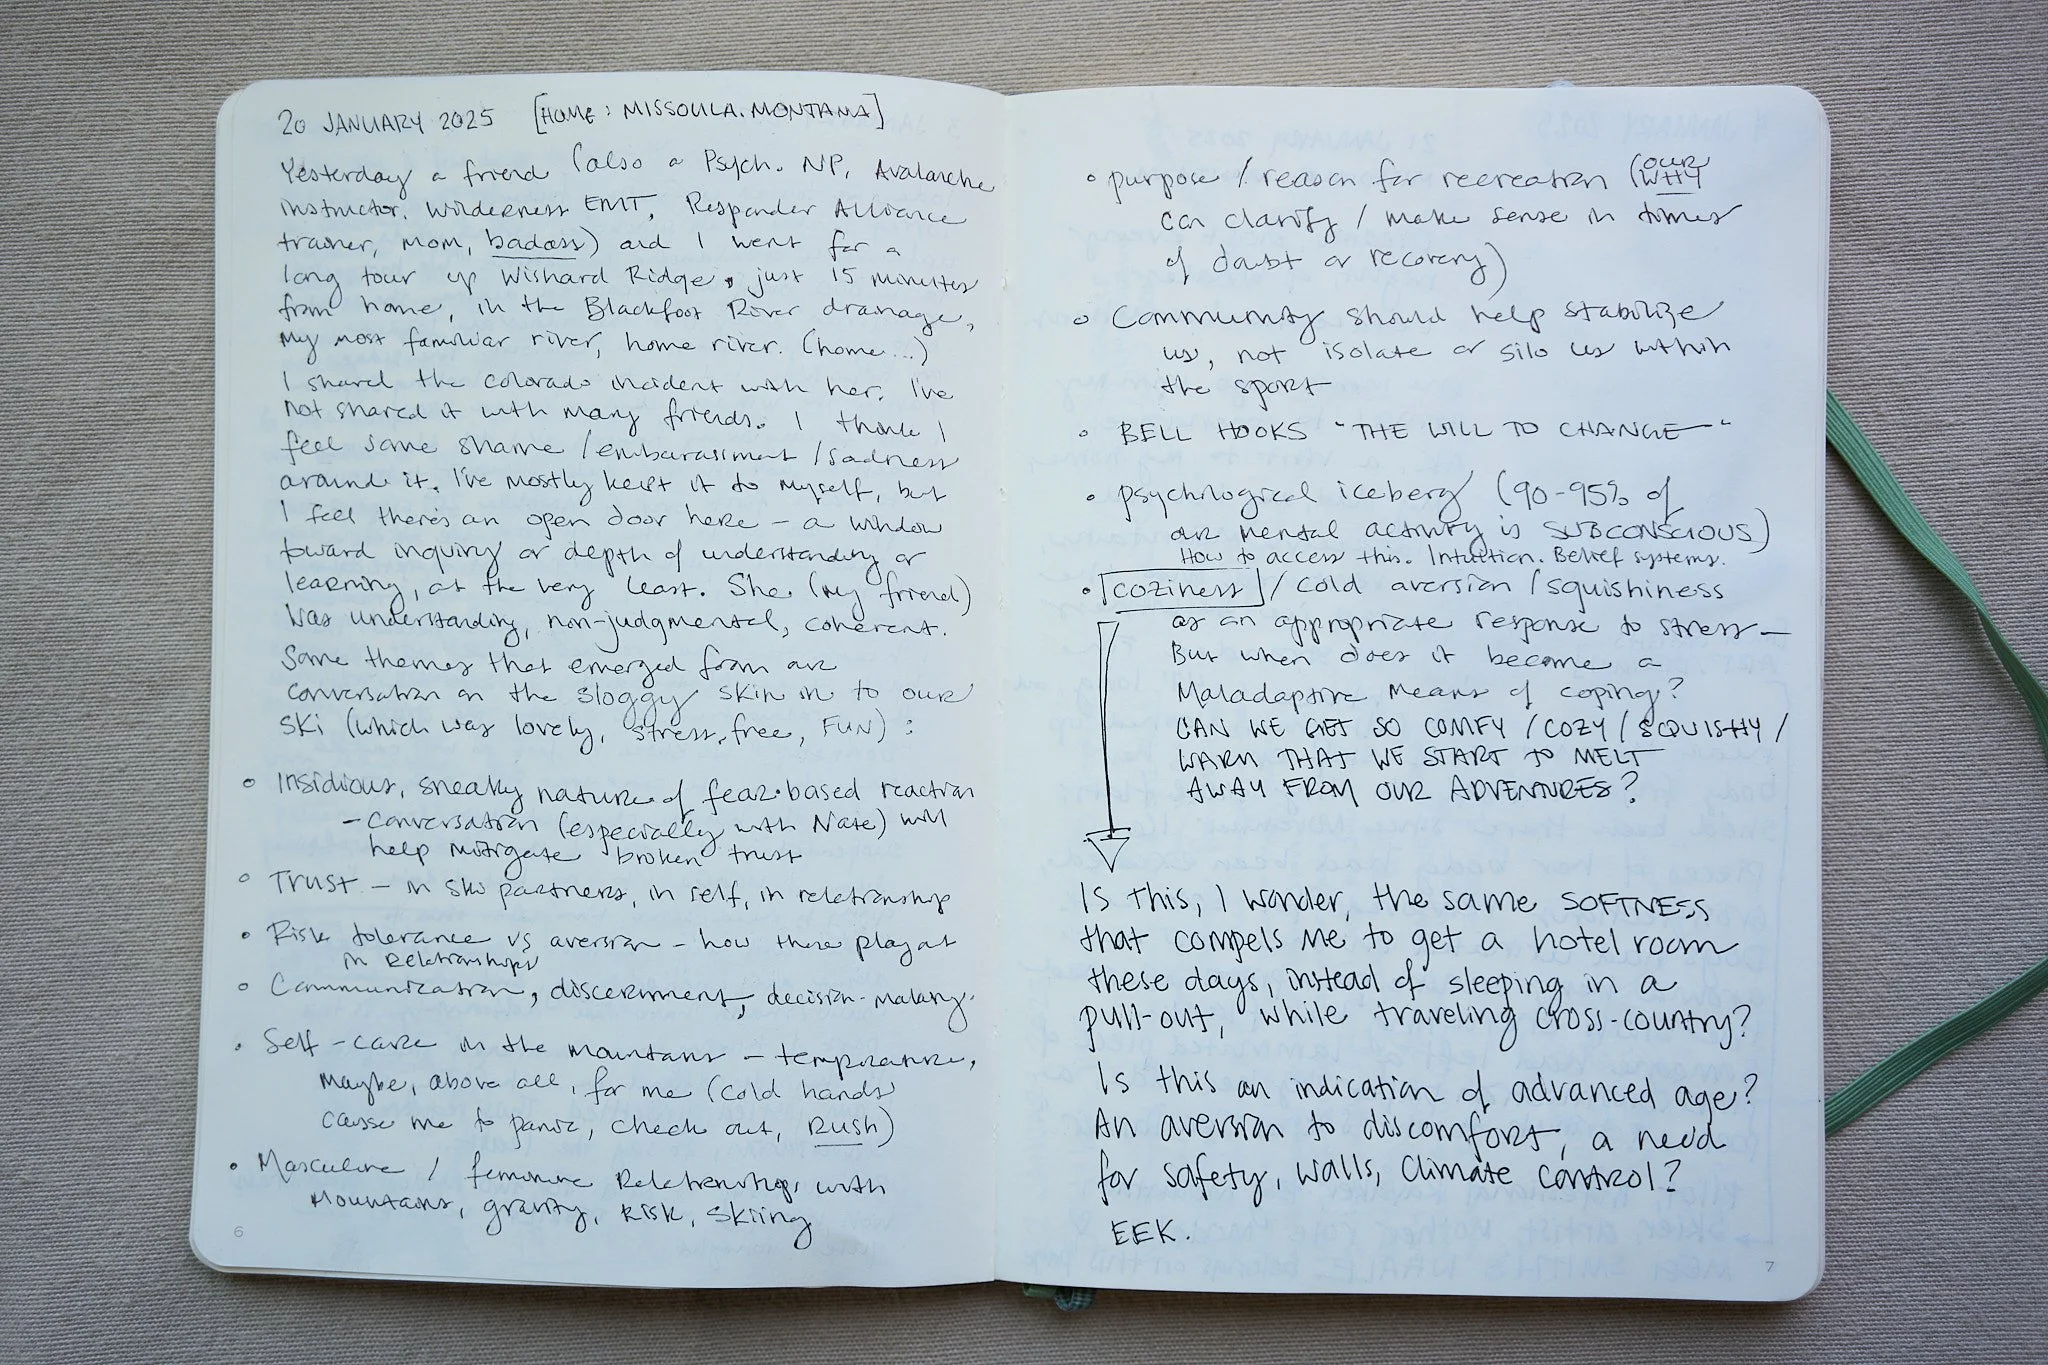 20 JANUARY 2025 [HOME: MISSOULA. MONTANA]
Yesterday a friend (also a Psych. NP, Avalanche
instructor, Wilderness EMT, Responder Alliance
trainer, mom, badass) and I went for a
long tour up Wishard Ridge, just 15 minutes
from home, in the Blackfoot River drainage,
my most familiar river, home river. (home...)
I shared the Colorado incident with her. I've
not shared it with many friends. I think I
feel some shame / embarassment / sadness
around it. I've mostly kept it to myself, but
I feel there's an open door here – a window
toward inquiry or depth of understanding or
learning, at the very least. She (my friend)
was understanding, non-judgmental, coherent.
Some themes that emerged from our
conversation on the sloggy skin in to our
ski (which was lovely, stress-free, FUN):
• Insidious, sneaky nature of fear-based reaction
– conversation (especially with Nate) will
help mitigate broken trust
• Trust – in ski partners, in self, in relationship
• Risk tolerance vs aversion – how these play out
in Relationships
• Communication, discernment, decision-making.
• Self-care in the mountains – temperature,
maybe, above all, for me (cold hands
cause me to panic, check out, RUSH)
• Masculine / feminine Relationships with
Mountains, gravity, RISK, Skiing
6
• purpose / reason for recreation (OUR
WHY
can clarify / make sense in times
of doubt or recovery)
• Community should help stabilize
us, not isolate or silo us within
the sport
• BELL HOOKS "THE WILL TO CHANGE"
• psychological iceberg (90-95% of
our mental activity is SUBCONSCIOUS)
How to access this. Intuition. Belief systems.
• coziness / cold aversion / squishiness
as an appropriate response to stress –
But when does it become a
Maladaptive means of coping?
CAN WE GET SO COMFY / COZY / SQUISHY /
WARM THAT WE START TO MELT
AWAY FROM OUR ADVENTURES?
Is this, I wonder, the same SOFTNESS
that compels me to get a hotel room
these days, instead of sleeping in a
pull-out, while traveling cross-country?
Is this an indication of advanced age?
An aversion to discomfort, a need
for safety, walls, climate control?
EEK.
7